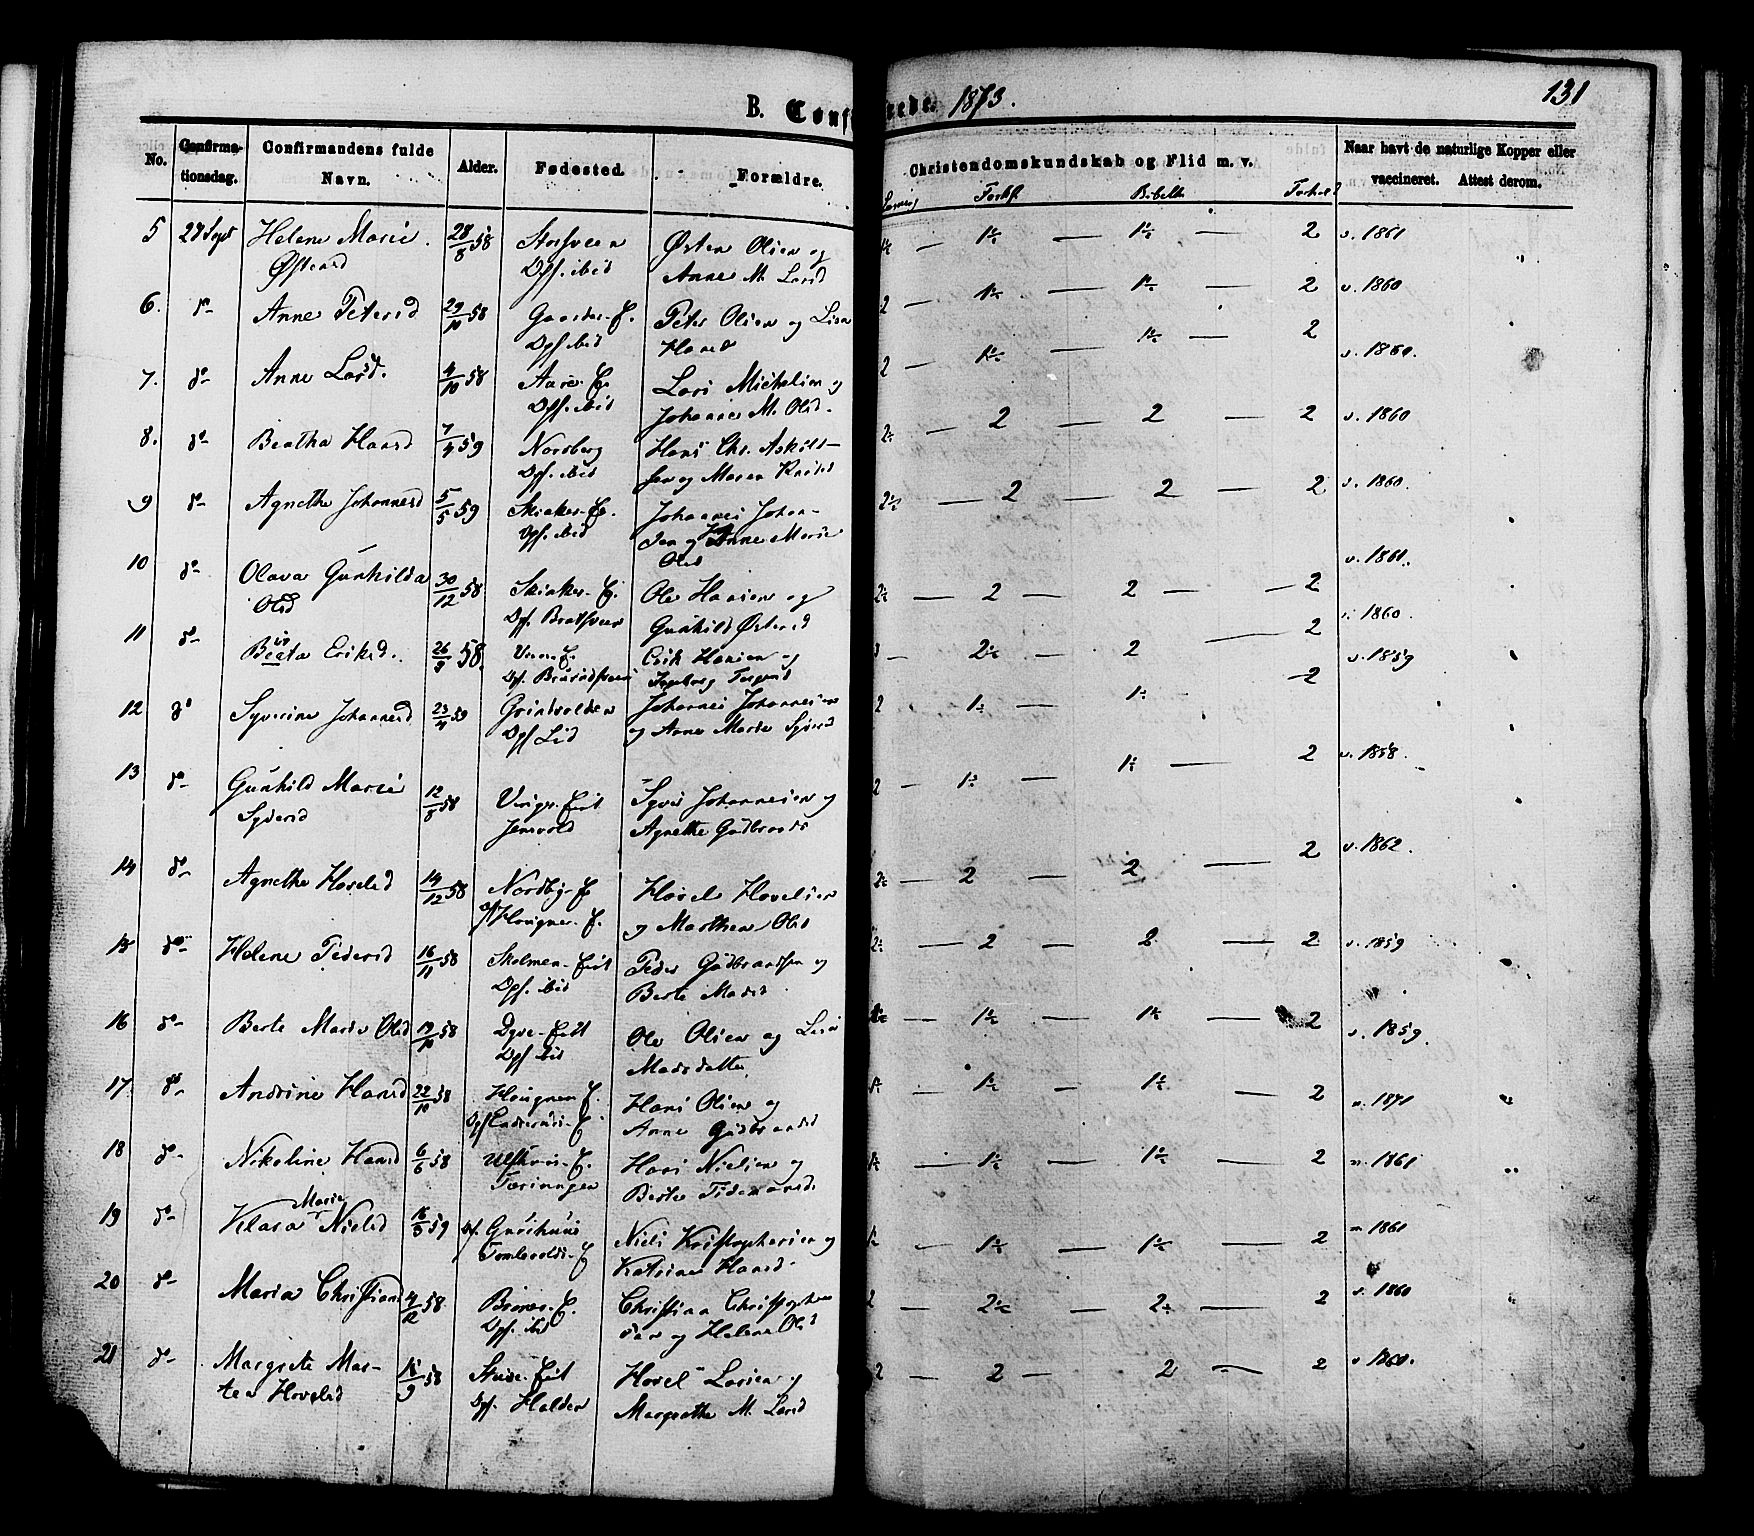 B. Conf
rede. 1873.
131
No.
Confirma-
tionsdag.
Confirmandens fulde
Navn.
Alder.
Fødested.
Forældre.
Christendomskundskab og Flid m. v.
Forkl.
Bibelh.
Forhold
Naar havt de naturlige Kopper eller
vaccineret. Attest derom.
5 27 Sept Helene Marie 28/8 58 Storsveen Østen Olsen og 1½ — 1½ — 2 v. 1861
Østensd Dpf. ibid Anne M. Larsd
6. do Anne Petersd 29/10 58 Gaarder-E. Peter Olsen og Lisa 2 — 1½ — 1½ — 2 v. 1860
Dpf ibid Hansd
7. do Anne Larsd. 4/10 58 Aars-E. Lars Michelsen og 2 — 1½ — 1½ — 2 v. 1860.
Dpf. ibid Johanne M. Olsd.
8. do Beatha Hansd 7/4 59 Norsberg Hans Chr. Askild- 2½ — 2 — 2 — 2 v. 1860
Dpf. ibid sen og Maren Knudsd
9 do Agnethe Johannesd 5/5 59 Skiaker-E. Johannes Johan- 2½ — 2 — 2 — 2 v. 1860.
Dpf. ibid sen og Anne Marie
Olsd
10 do Olava Gunhilda 30/12 58 Skiaker-E. Ole Hansen og 2½ — 2 — 2 — 2 v. 1861.
Olsd Dpf. Bratsveen Gunhild Østensd
11 do Berta Eriksd. 26/9 58 Erik Hansen og 3 — 2½ — 2 — 2 v. 1860
Dpf. Ingeborg
12 do Syverine Johannesd 23/4 59 Grindvolden Johannes Johannesen 2 — 1½ — 1½ — 2 v. 1859
Dpf Lid og Anne Marie Syversd
13 do Gunhild Marie 12/8 58 Syver Johannesen og 2 — 1½ — 1½ — 2 v. 1858.
Syversd Jensvold Agnethe Gudbrandsd
14 do Agnethe Hovelsd 14/12 58 Nordby-E Hovel Hovelsen 2½ — 2 — 2 — 2 v. 1862.
og Marthea Olsd
15 do Helene Pedersd 16/11 58 Skolmen-Eiet Peder Gudbrandsen og 2½ — 2 — 2 — 2 v. 1859
Dpf. ibid Berte Madsd
16 do Berte Marie Olsd 19/10 58 Dyre-Eiet Ole Olsen og 1½ — 1½ — 2 v. 1859.
Dpf ibid Madsdatter
17. do Andrine Hansd 22/10 58 Hans Olsen og 1½ — 1½ — 1½ — 2 v. 1871
Anne Gudbrandsd
18 do Nikoline Hansd 6/6 58 Hans Nielsen og 1½ — 1½ — 1½ — 2 v. 1861
Berte Tidemandsd.
Marie
19 do Klara Nielsd 16/3 59 Niels Kristophersen og 1½ — 1½ — 1½ — 2 v. 1861
Tomlevolds-E Katrine Hansd.
20 do Maria Christiansd 4/12 58. Christian Christophe 2 — 2½ — 2½ — 2 v. 1860
Dpf. ibid sen og Helene Olsd
21 do Margrete Mar- 15/9 58 Hovel Larsen og 2 — 2 — 2 — 2 v 1860.
tea Hovelsd Dpf. Halden Margrethe M. Larsd